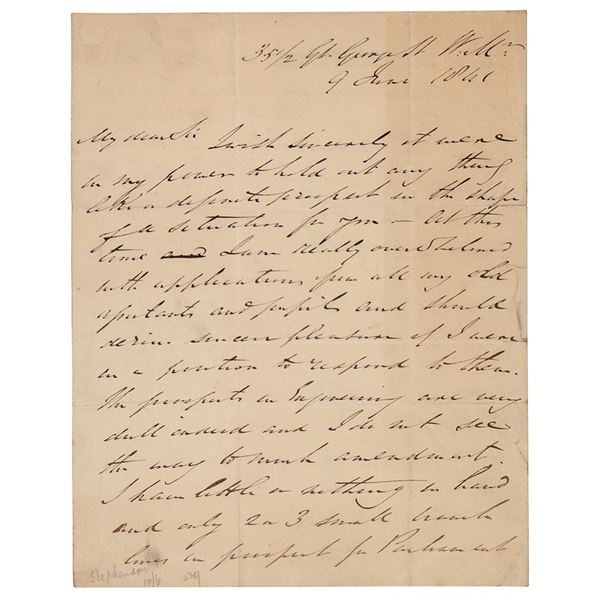 35½ Gt. George St Westr
9 June 1841
My dear Sir I wish sincerely it were
in my power to hold out any thing
like a definite prospect in the shape
of a situation for you – At this
time and I am really overwhelmed
with applications from all my old
assistants and pupils and should
derive sincere pleasure if I were
in a position to respond to them.
The prospects in Engineering are very
dull indeed and I do not see
the way to much amendment.
I have little or nothing in hand
and only 2 or 3 small branch
lines in prospect for Parliament
Stephenson
10/6 229